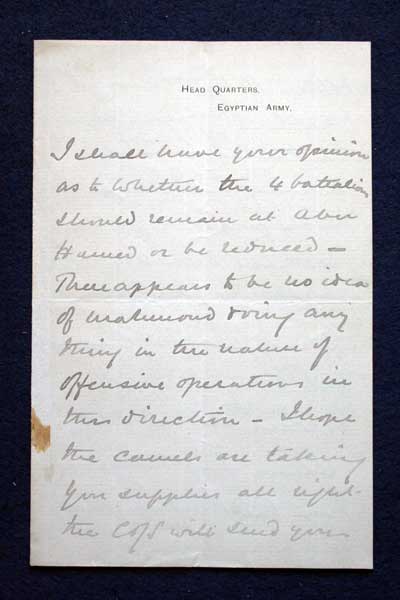 HEAD QUARTERS.
EGYPTIAN ARMY.
I shall have your opinion
as to whether the 4 battalions
should remain at Abu
Hamed or be reduced –
There appears to be no idea
of Mahmoud doing any
thing in the nature of
offensive operations in
this direction – I hope
the camels are taking
you supplies all right –
the CofS will send you